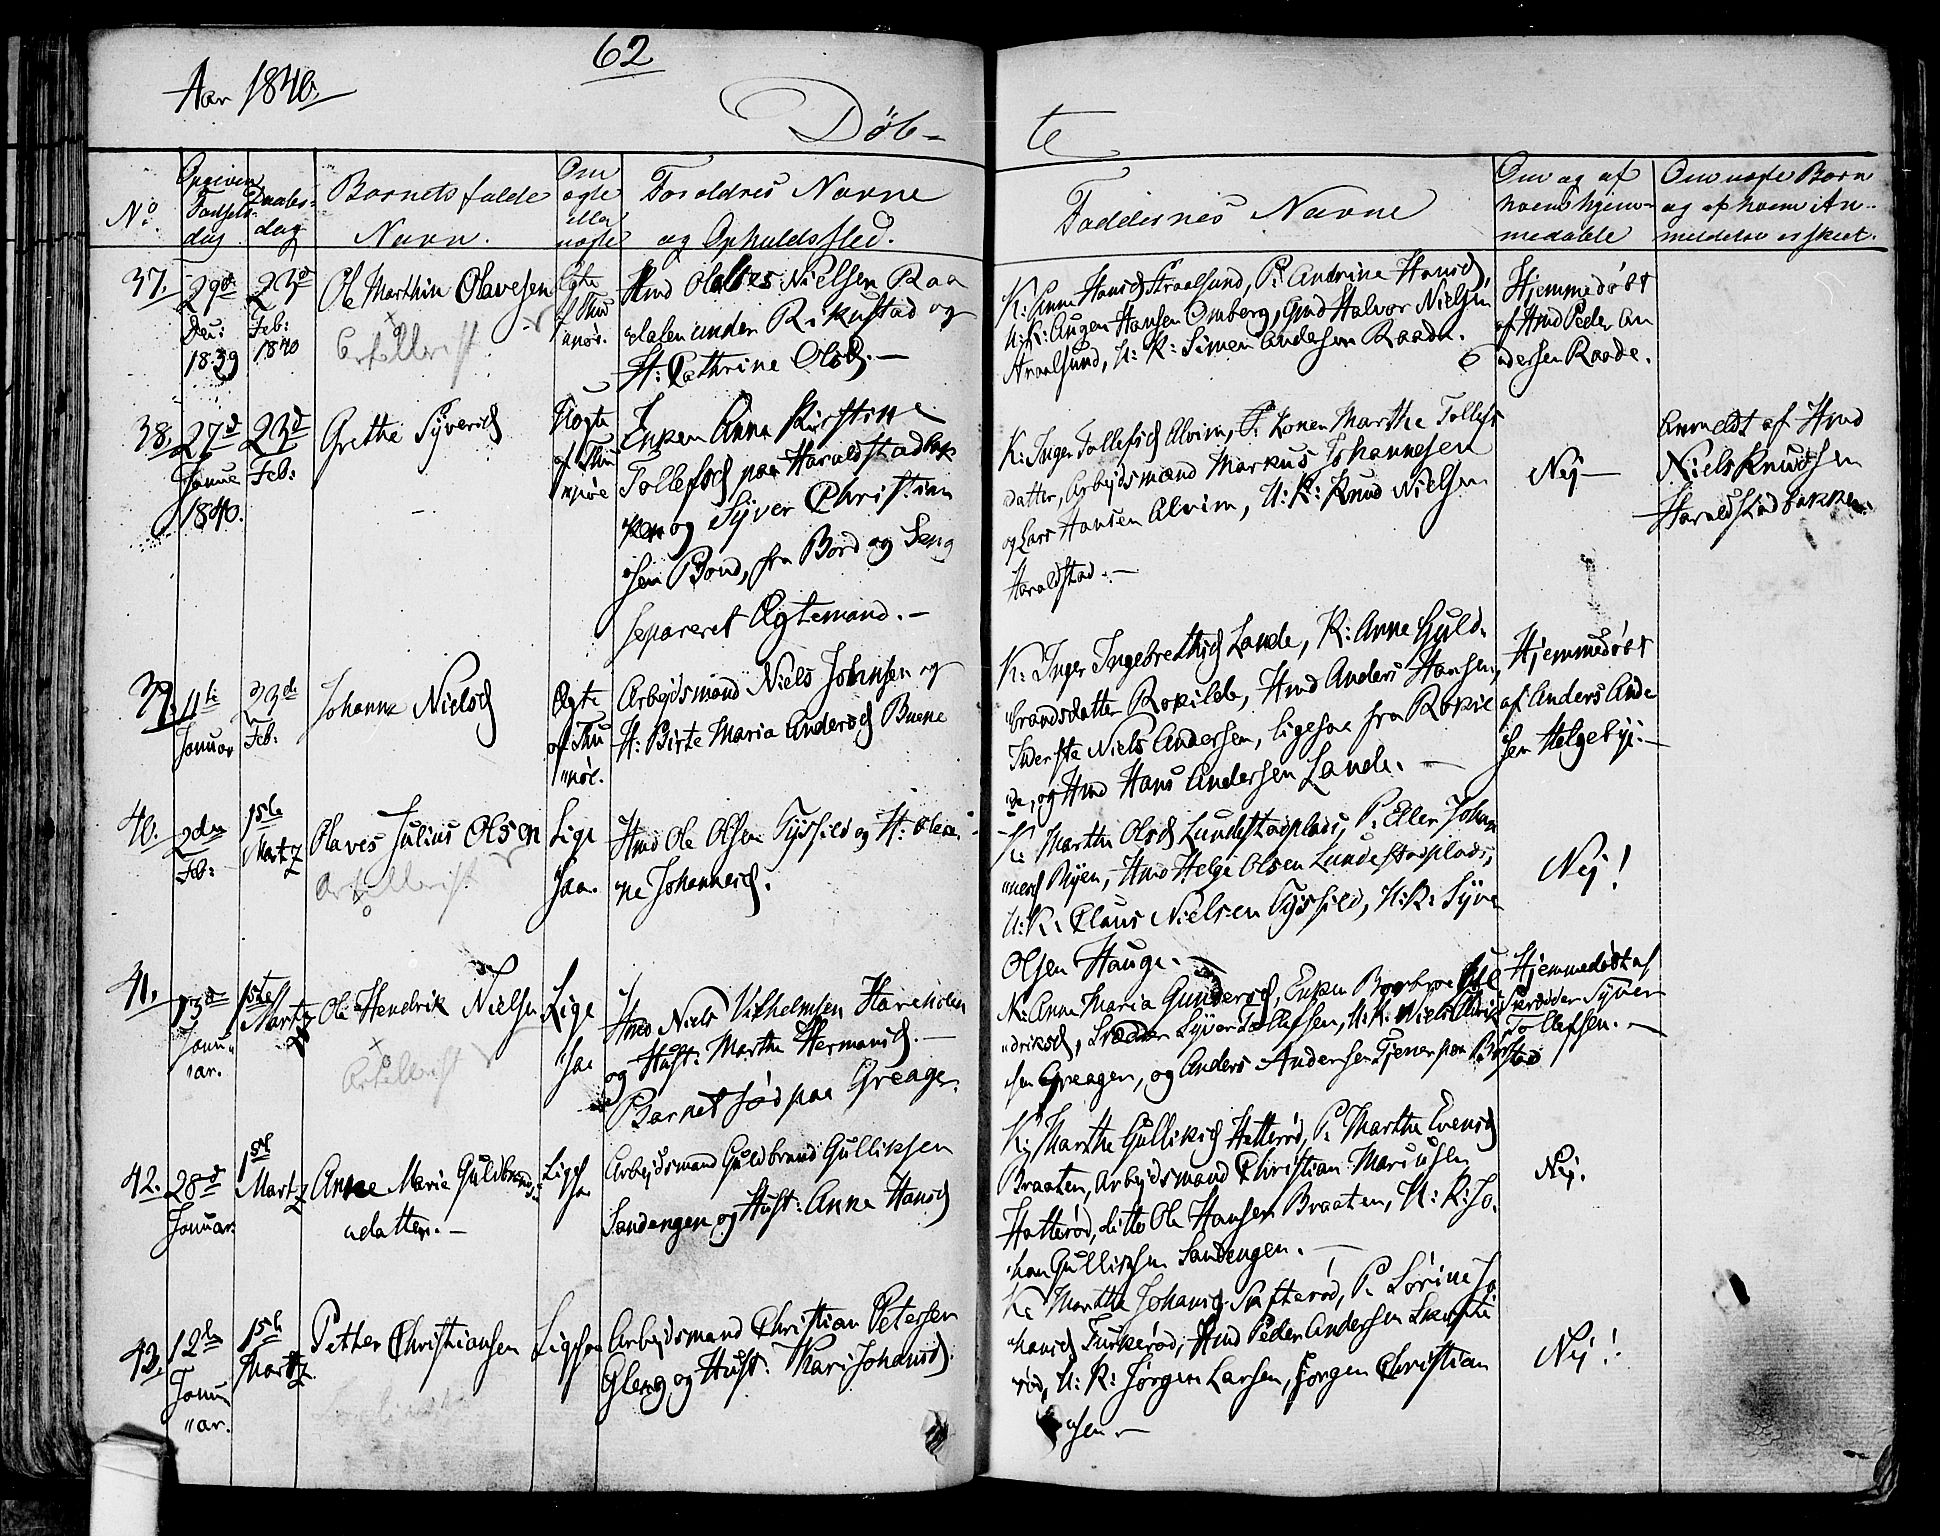 62
Aar 1840.
Døb-
te
No.
Opgiven Fødsels dag
Daabs- dag
Barnets fulde
Navn.
Om
ægte
eller
uægte
Forældres Navne
og Opholdssted.
Faddernes Navne
Om og af
hvem hjem-
medøbte
Om uægte Børn
og af hvem An-
meldelse er skeet.
37.
29d
Dec:
1839
23d
Feb:
1840
Ole Marthin Olavesen
Artillerist
Ægte
Hmd Olaves Nielsen Raa
dalen under Rikustad og
H: Cathrine Olsd. —
K: Anne Hansd Straalsund, P: Andrine Hansd,
U: K: Augen Hansen Omberg, Gmd Halvor Nielsen
Straalsund, U: K: Simen Andersen Raade.
Hjemmedøbt
af Hmd Peder An
dersen Raade.
38.
27d
Janue
1840.
23d
Feb:
Grethe Syversd
Uægte
Enken Anne Kirstine
Tollefsd paa Haraldstadbak
ken og Syver Christian
sen Bond, fra Bord og Seng
separeret Ægtemand. —
K: Inger Tollefsd Alvim, P: Konen Marthe Tollefs
datter, Arbejdsmand Markus Johannesen
og Lars Hansen Alvim, U: K: Knud Nielsen
Haraldstad. —
Nej —
Anmeldt af Hmd
Niels Knudsen
Haraldstadbakken.
39.
11te
Januar
23de
Feb:
Johanne Nielsd
Ægte
Arbejdsmand Niels Johnsen og
H: Birte Maria Andersd Buene
K: Inger Ingebrethsd Lande, K: Anne Guld-
brandsdatter Rokilde, Hmd Anders Hansen,
Inderste Niels Andersen, ligesaa fra Rokil
de, og Hmd Hans Andersen Lande. —
Hjemmedøbt
af Anders Ande
sen Helgebye. —
40.
2den
Feb:
1ste
Martz
Olaves Julius Olsen
Artillerist
Lige
saa.
Hmd Ole Olsen Tysfild og H: Olea
ne Johannesd.
K: Marthe Olsd Lundestadplads, P: Eller Johan
nesd Byen, Hmd Helge Olsen Lundestadplads,
U: K: Claus Nielsen Tysfild, U: K: Syver
Olsen Hauge. —
Nej!
41.
13d
Janu
ar.
1ste
Martz
Ole Hendrik Nielsen
Artillerist
Lige
saa
Hmd Niels Vilhelmsen Hareholen
og Hust: Marthe Hermansd. —
Barnet fød paa Greager.
K: Anne Maria Gundersd, Enken Barbroe
driksd, Skrædder Syver Tollefsen, U: K: Niels
sen Greager, og Anders Andersen Tjener paa Børstad
Hjemmedøbt af
Skrædder Syver
Tollefsen. —
42.
28d
Januar.
1ste
Martz
Anne Marie Guldbrands
datter. —
Lige
saa
Arbejdsmand Guldbrand Gulliksen
Sandengen og Hust: Anne Hansd
K: Marthe Gulliksd Hatterød, P: Marthe Evensd
Braaten, Arbejdsmand Christian Mariusen
Hatterød, ditto Ole Hansen Braaten, U: K: Jo-
han Gulliksen Sandengen. —
Nej.
43.
12te
Janu
ar.
1ste
Martz
Petter Christiansen
Ligesaa
Arbejdsmand Christian Petersen
Gleng og Hust: Kari Johansd.
K: Marthe Johansd Skofterød, P: Sørine Jo
hansd Furkerød, Hmd Peder Andersen Skofte
rød, U: K: Jørgen Larsen, Jørgen Christian
sen. —
Nej!